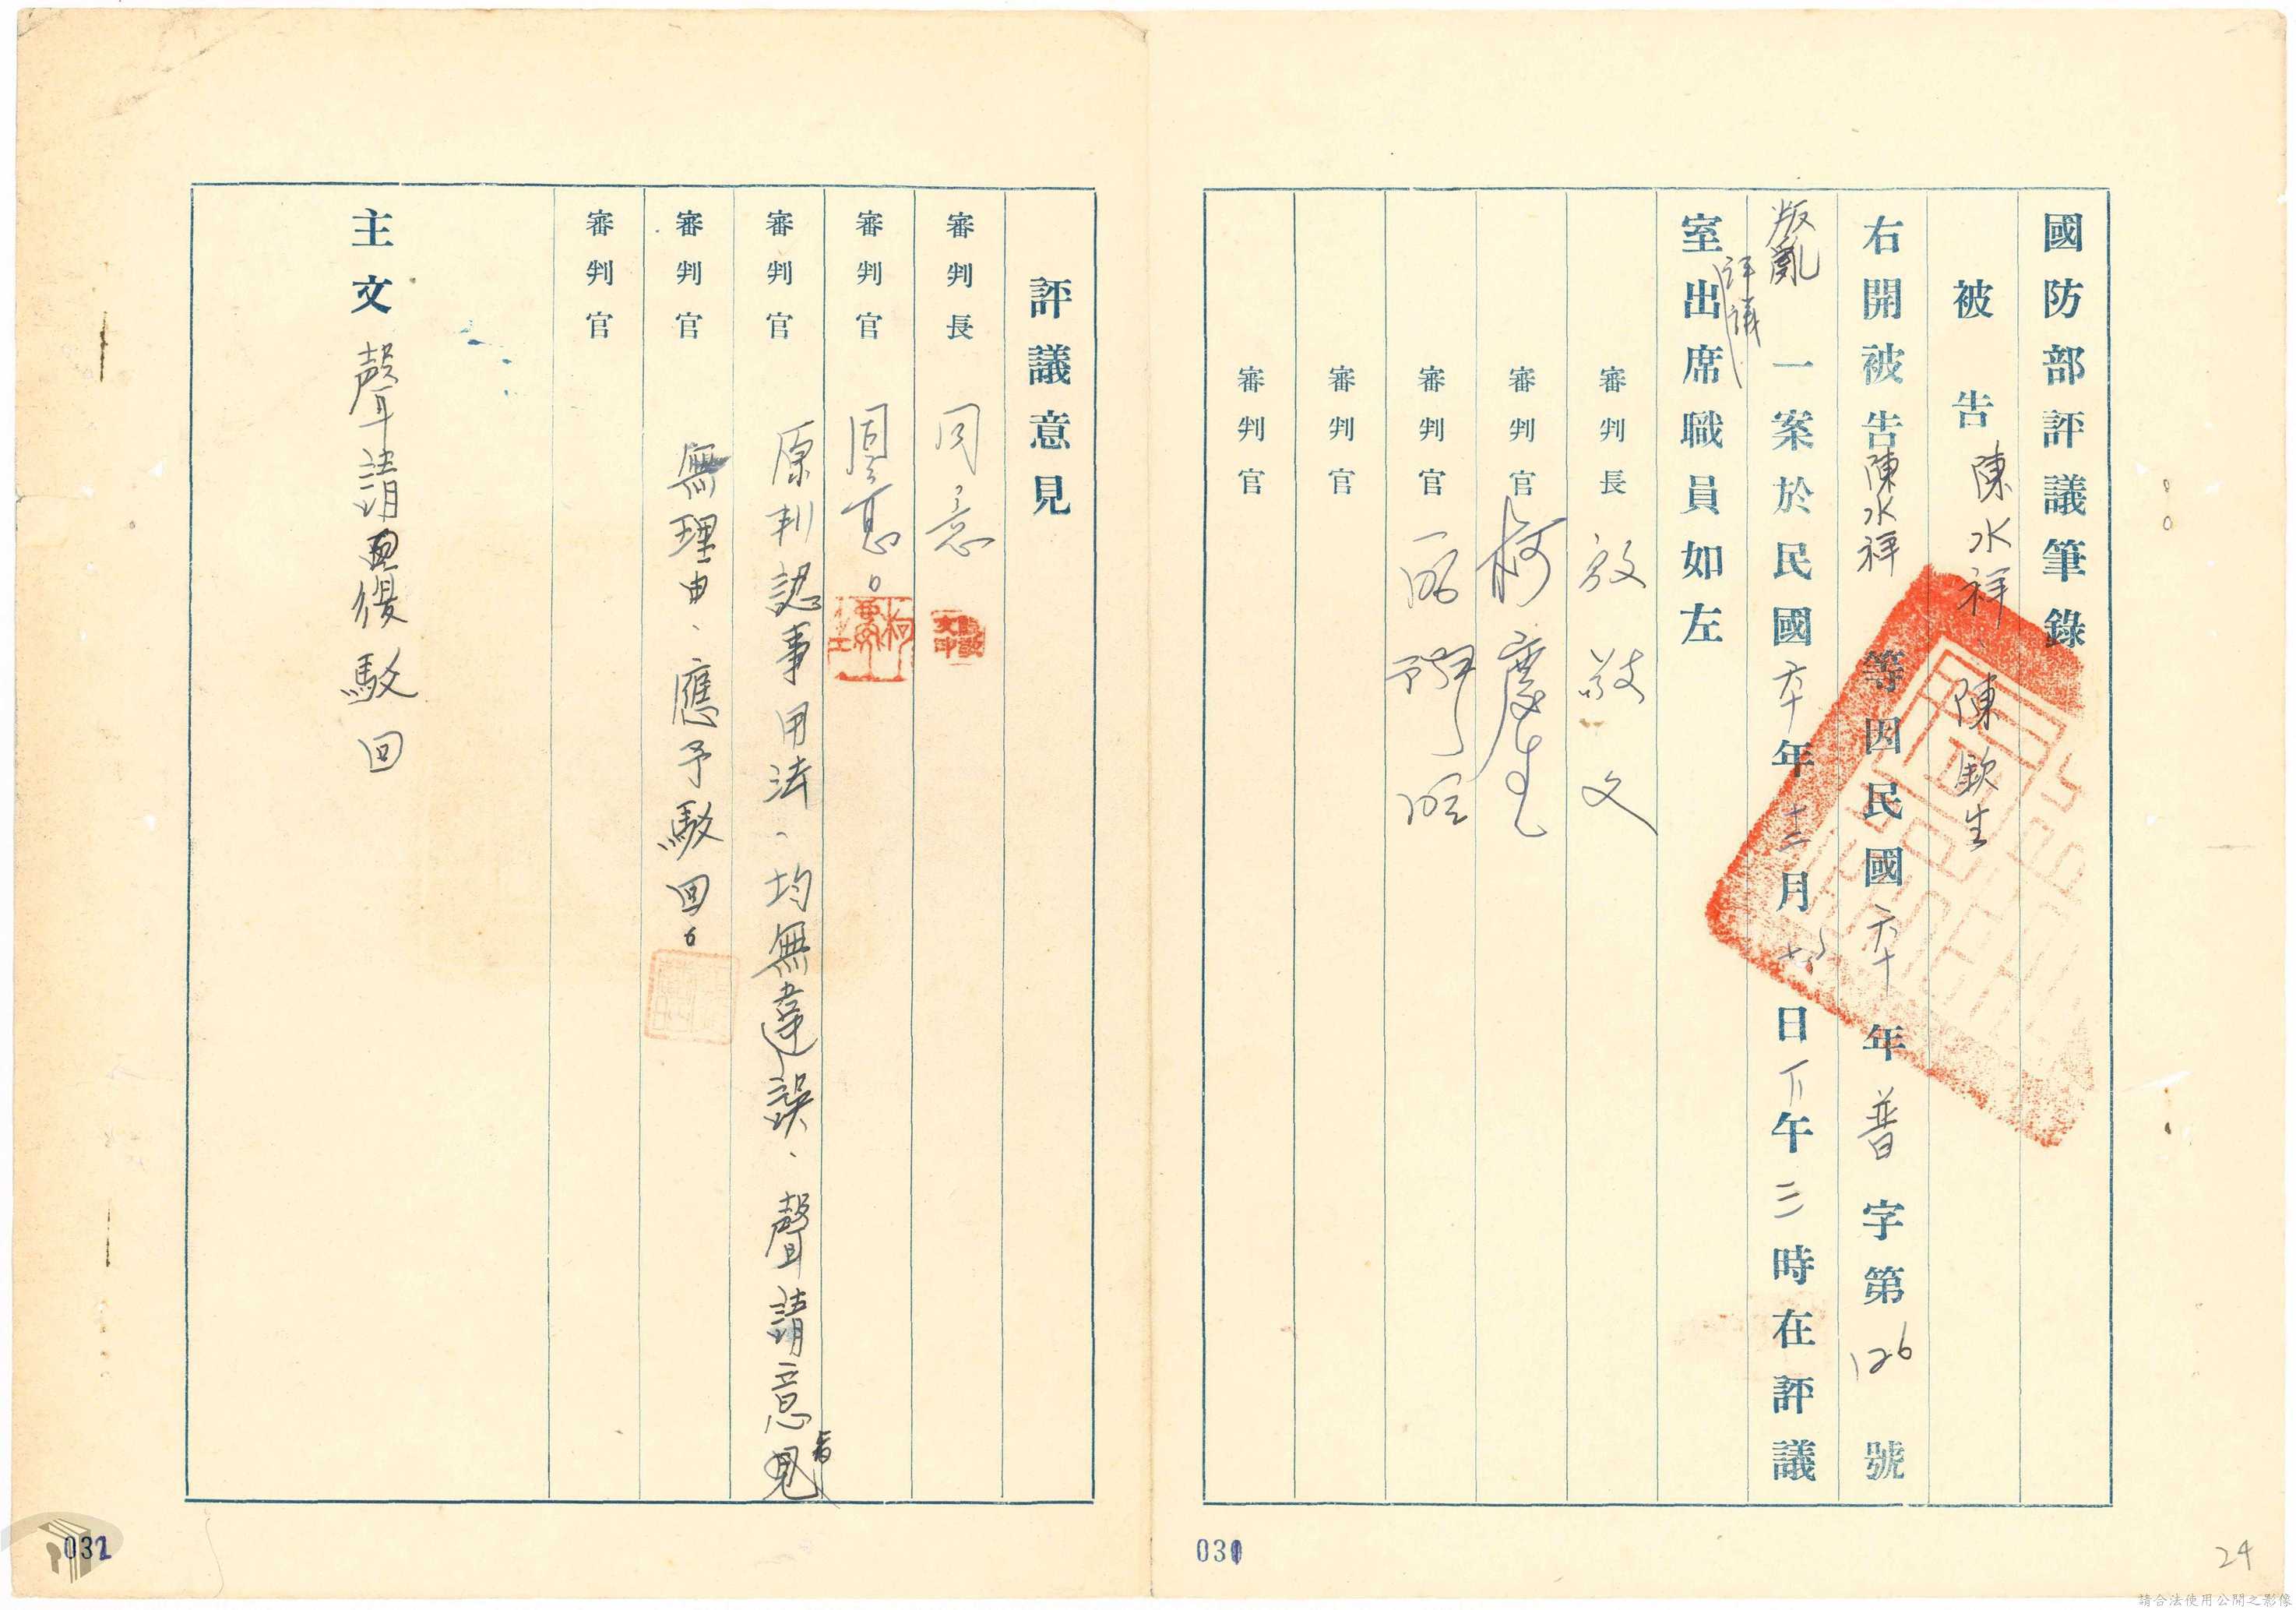 國防部評議筆錄
被告 陳水祥、陳欽生
右開被告陳水祥等因民國六十年普字第126號
叛亂一案於民國六十年十二月 日下午三時在評議
評議
室出席職員如左
審判長 敬文
審判官 柯慶生
審判官
審判官
審判官
評議意見
審判長 同意
審判官 同意。
審判官 原判認事用法、均無違誤、聲請意見
審判官 無理由、應予駁回。
審判官
主文 聲請覆駁回
031
032
24
請合法使用公開之影像